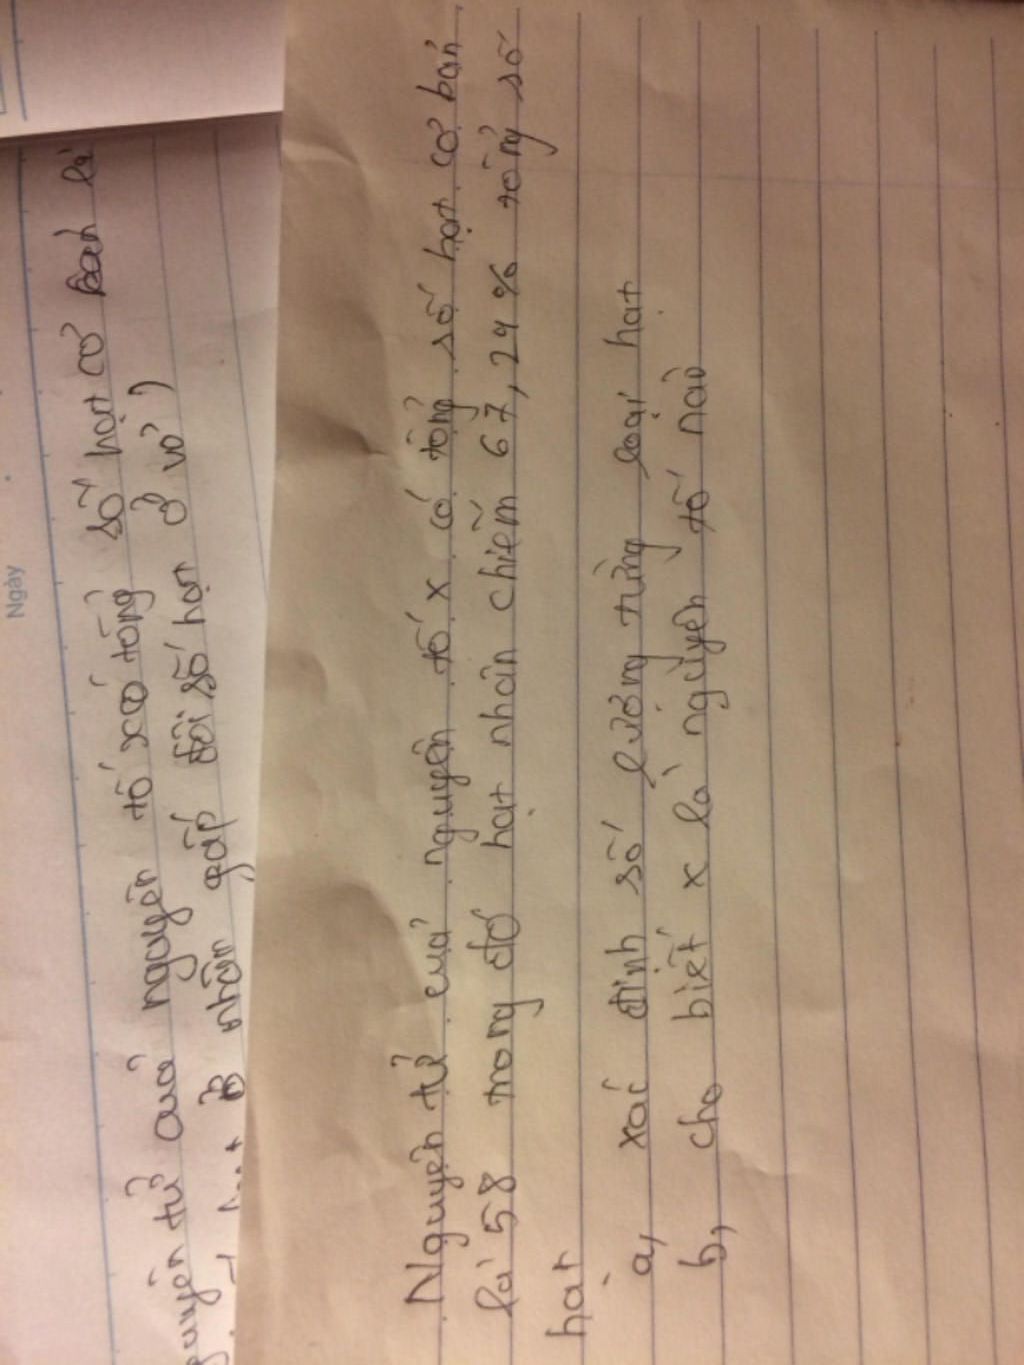 Ngày
nguyên tử của nguyên tố x có tổng số hạt cơ bản là
nhân gấp đôi số hạt ở vỏ)
Nguyên tử của nguyên tố x có tổng số hạt cơ bản
là 58 trong đó hạt nhân chiếm 67,24% tổng số
hạt
a, xác định số lượng từng loại hạt
b, cho biết x là nguyên tố nào